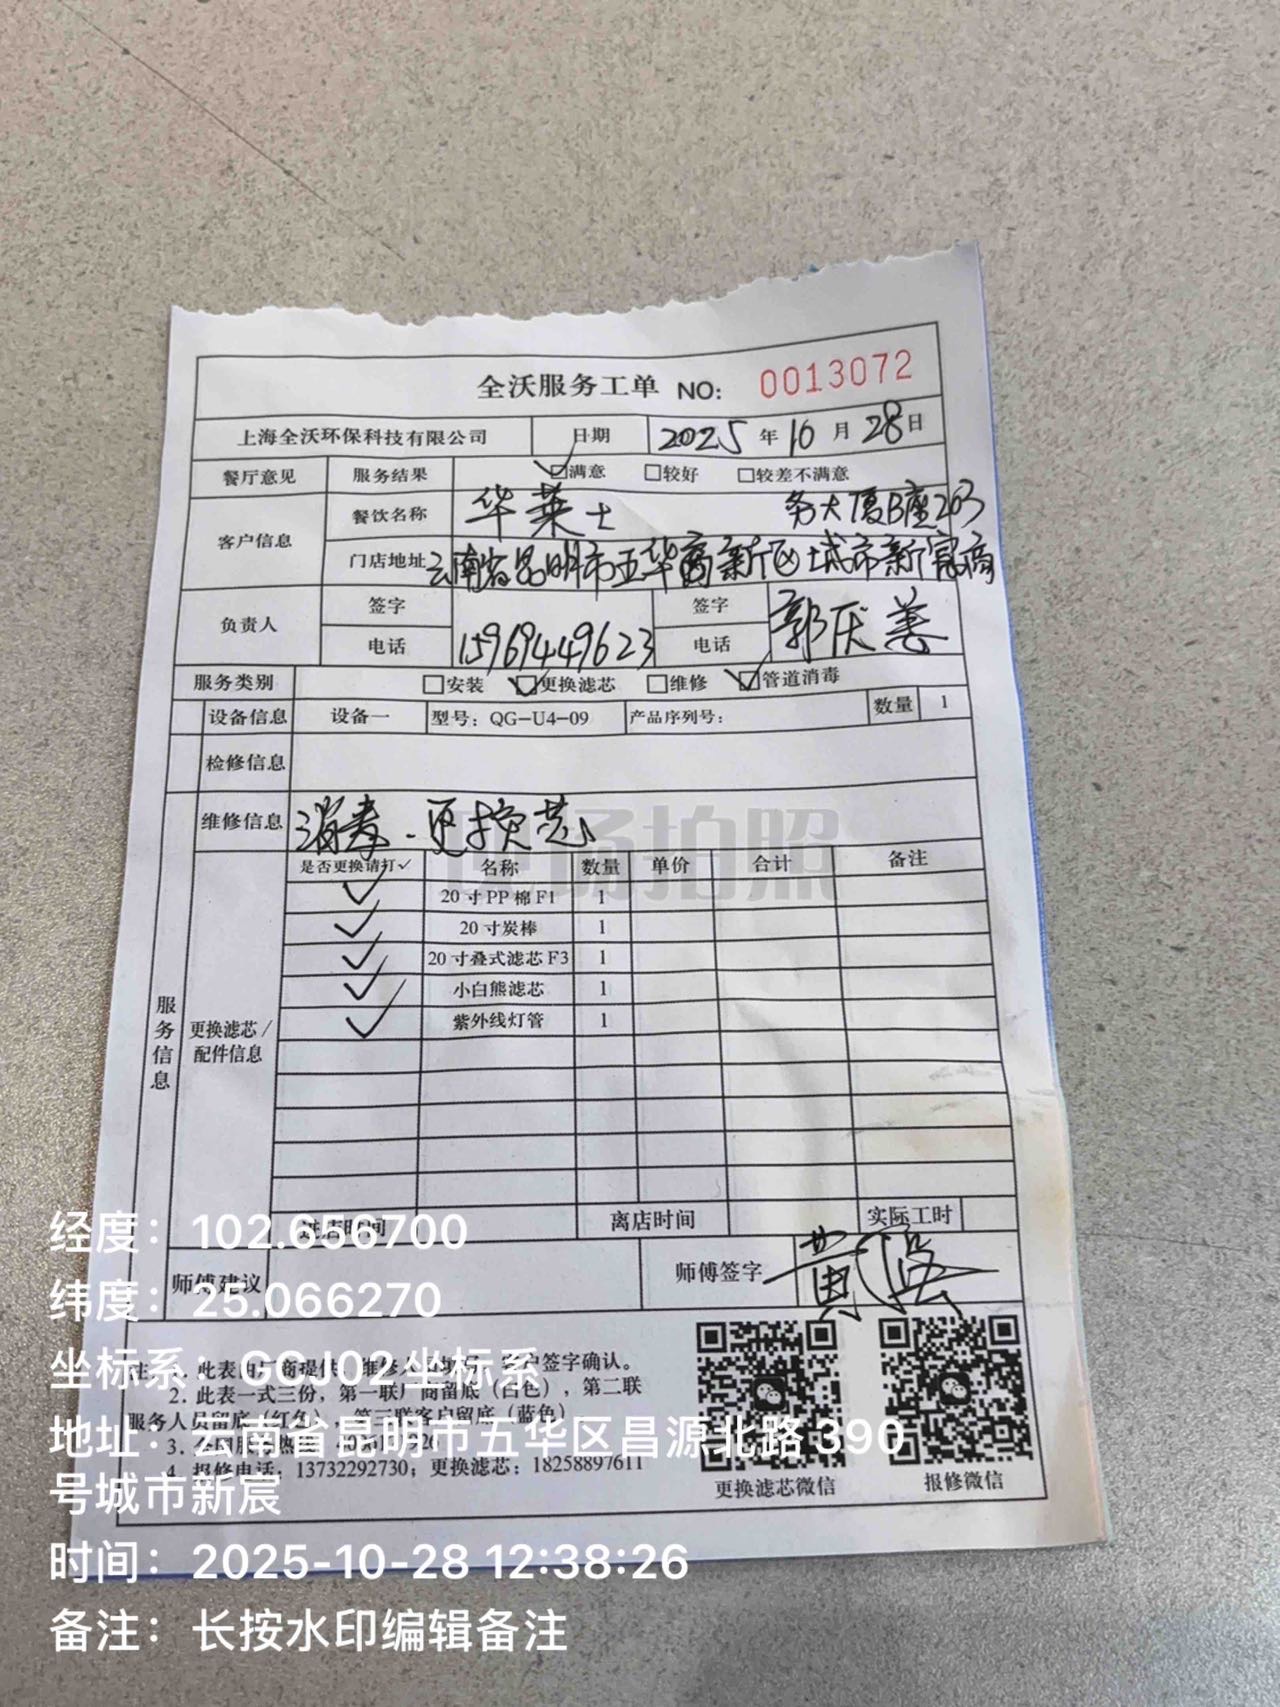 全沃服务工单 NO: 0013072
上海全沃环保科技有限公司 日期 2025年10月28日
餐厅意见 服务结果 ☑满意 □较好 □较差不满意
客户信息 餐饮名称 华莱士 务大厦B座203
门店地址 云南省昆明市五华高新区城市新宸商
负责人 签字 签字
电话 15969449623 电话
服务类别 □安装 ☑更换滤芯 □维修 ☑管道消毒
设备信息 设备一 型号：QG-U4-09 产品序列号： 数量 1
检修信息
维修信息 消毒.更换芯
现场拍照
是否更换请打✓ 名称 数量 单价 合计 备注
✓ 20寸PP棉F1 1
✓ 20寸炭棒 1
✓ 20寸叠式滤芯F3 1
✓ 小白熊滤芯 1
✓ 紫外线灯管 1
服务信息
更换滤芯/
配件信息
进店时间 离店时间 实际工时
师傅建议 师傅签字 黄强
注：1. 此表由厂商提供，客户签字确认。
2. 此表一式三份，第一联厂商留底（白色），第二联
服务人员留底（红色），第三联客户留底（蓝色）
4. 报修电话：13732292730；更换滤芯：18258897611
更换滤芯微信 报修微信
经度：102.656700
纬度：25.066270
坐标系：GCJ02坐标系
地址：云南省昆明市五华区昌源北路390
号城市新宸
时间：2025-10-28 12:38:26
备注：长按水印编辑备注